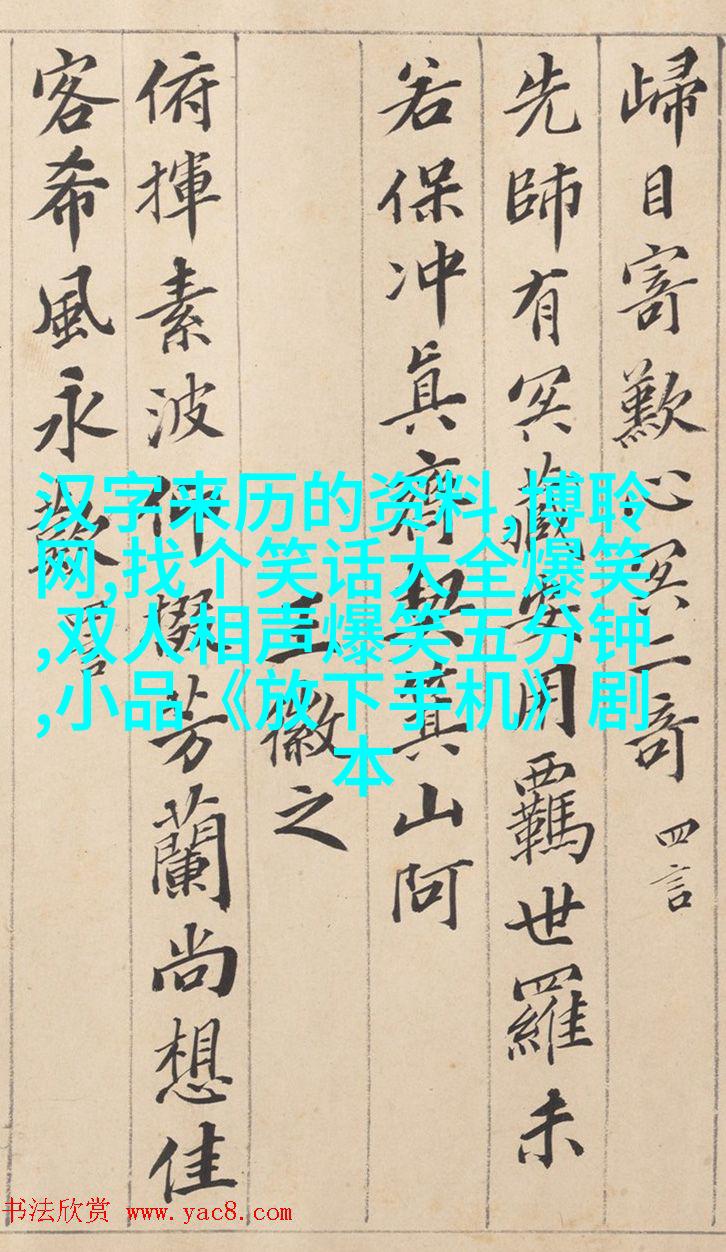 歸目寄歎心冥二奇 四言
先師有冥藏安用羈世羅未
若保冲真齊契箕山阿
王徽之
俯揮素波仰掇芳蘭尚想佳
客希風永歎 言
汉字来历的资料,博聆
网,找个笑话大全爆笑
,双人相声爆笑五分钟
,小品《放下手机》剧
本
书法欣赏 www.yac8.com